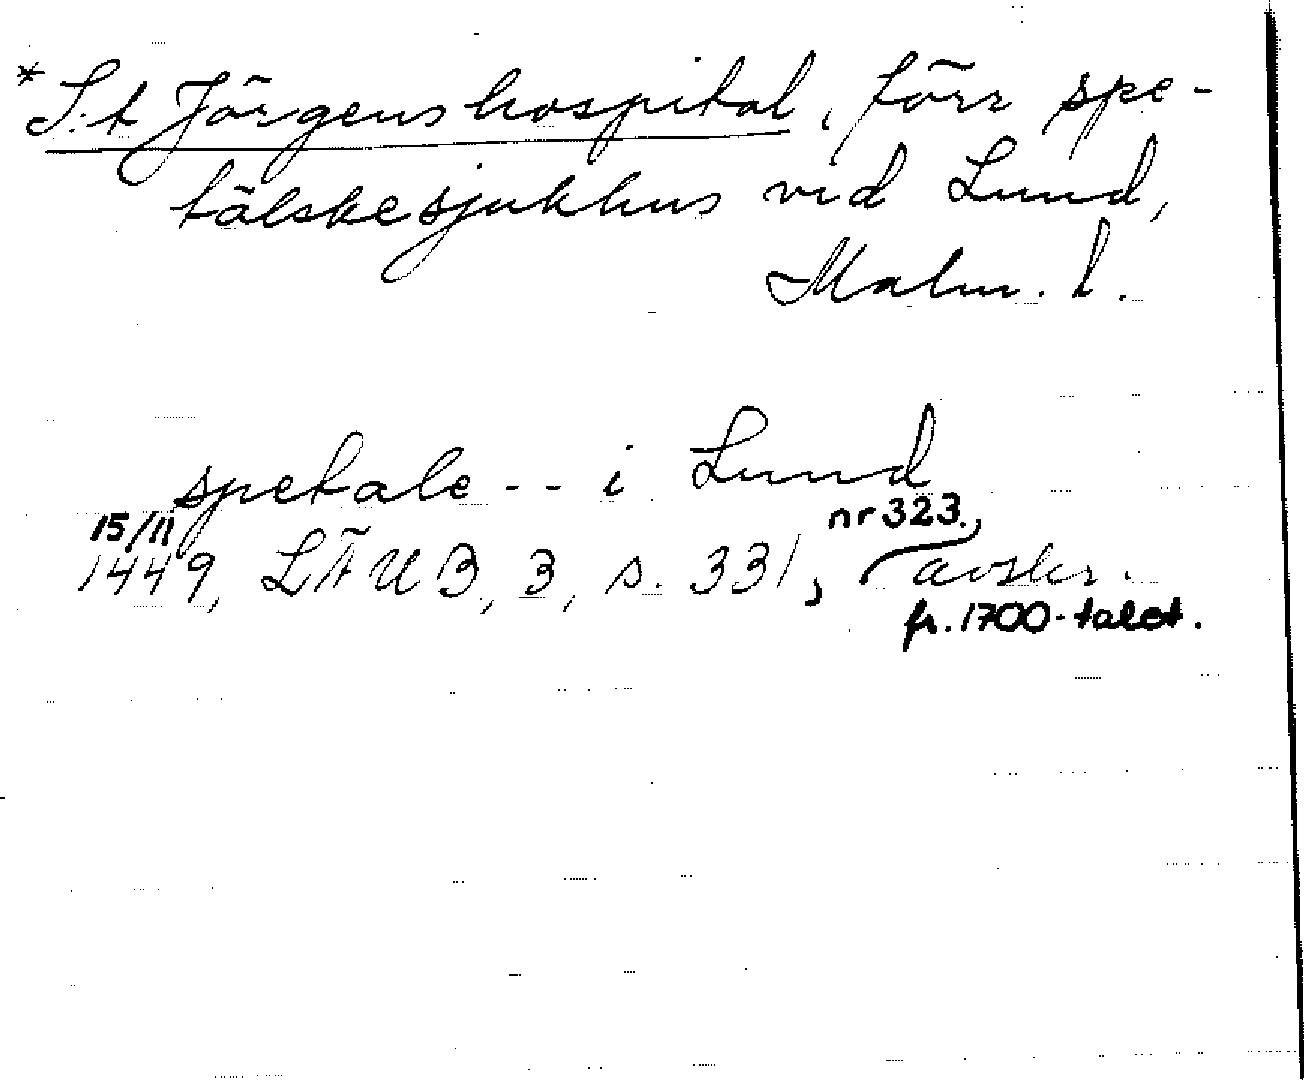 *S:t Jörgens hospital, förr spe-
tälskesjukhus vid Lund,
Malm. l.
spetale -- i Lund
15/11 nr 323.,
1449, LÄUB, 3, s. 331, avskr.
fr. 1700-talet.